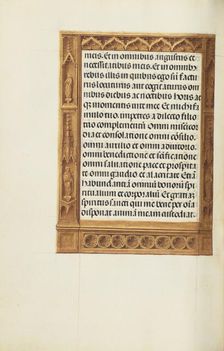 meis. Et in omnibus angustiis et
necessitatibus meis. Et in omnibus
rebus illis in quibus ego su factu
locuturus aut cogitaturus om
nibus diebus ac noctibus horis at
momentis vite mee. Et michi fa
mulo tuo impetres a dilecto filio
tuo complementū Omni misericor
dia et consolatione omni consilio
omni auxilio et omni adiutorio.
omni benedictione et sanctificatione
omni salvatione pace et prosperitate
omni gaudio et alacritate Etiā
habundantia omniū bonorū spiri
tualium et corporaliū. Et gratiā
spiritus sancti que me bene per oīa
disponat animā meā custodiat.